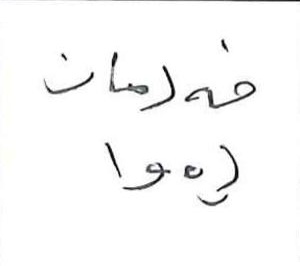 فەرمان
ڕەوا